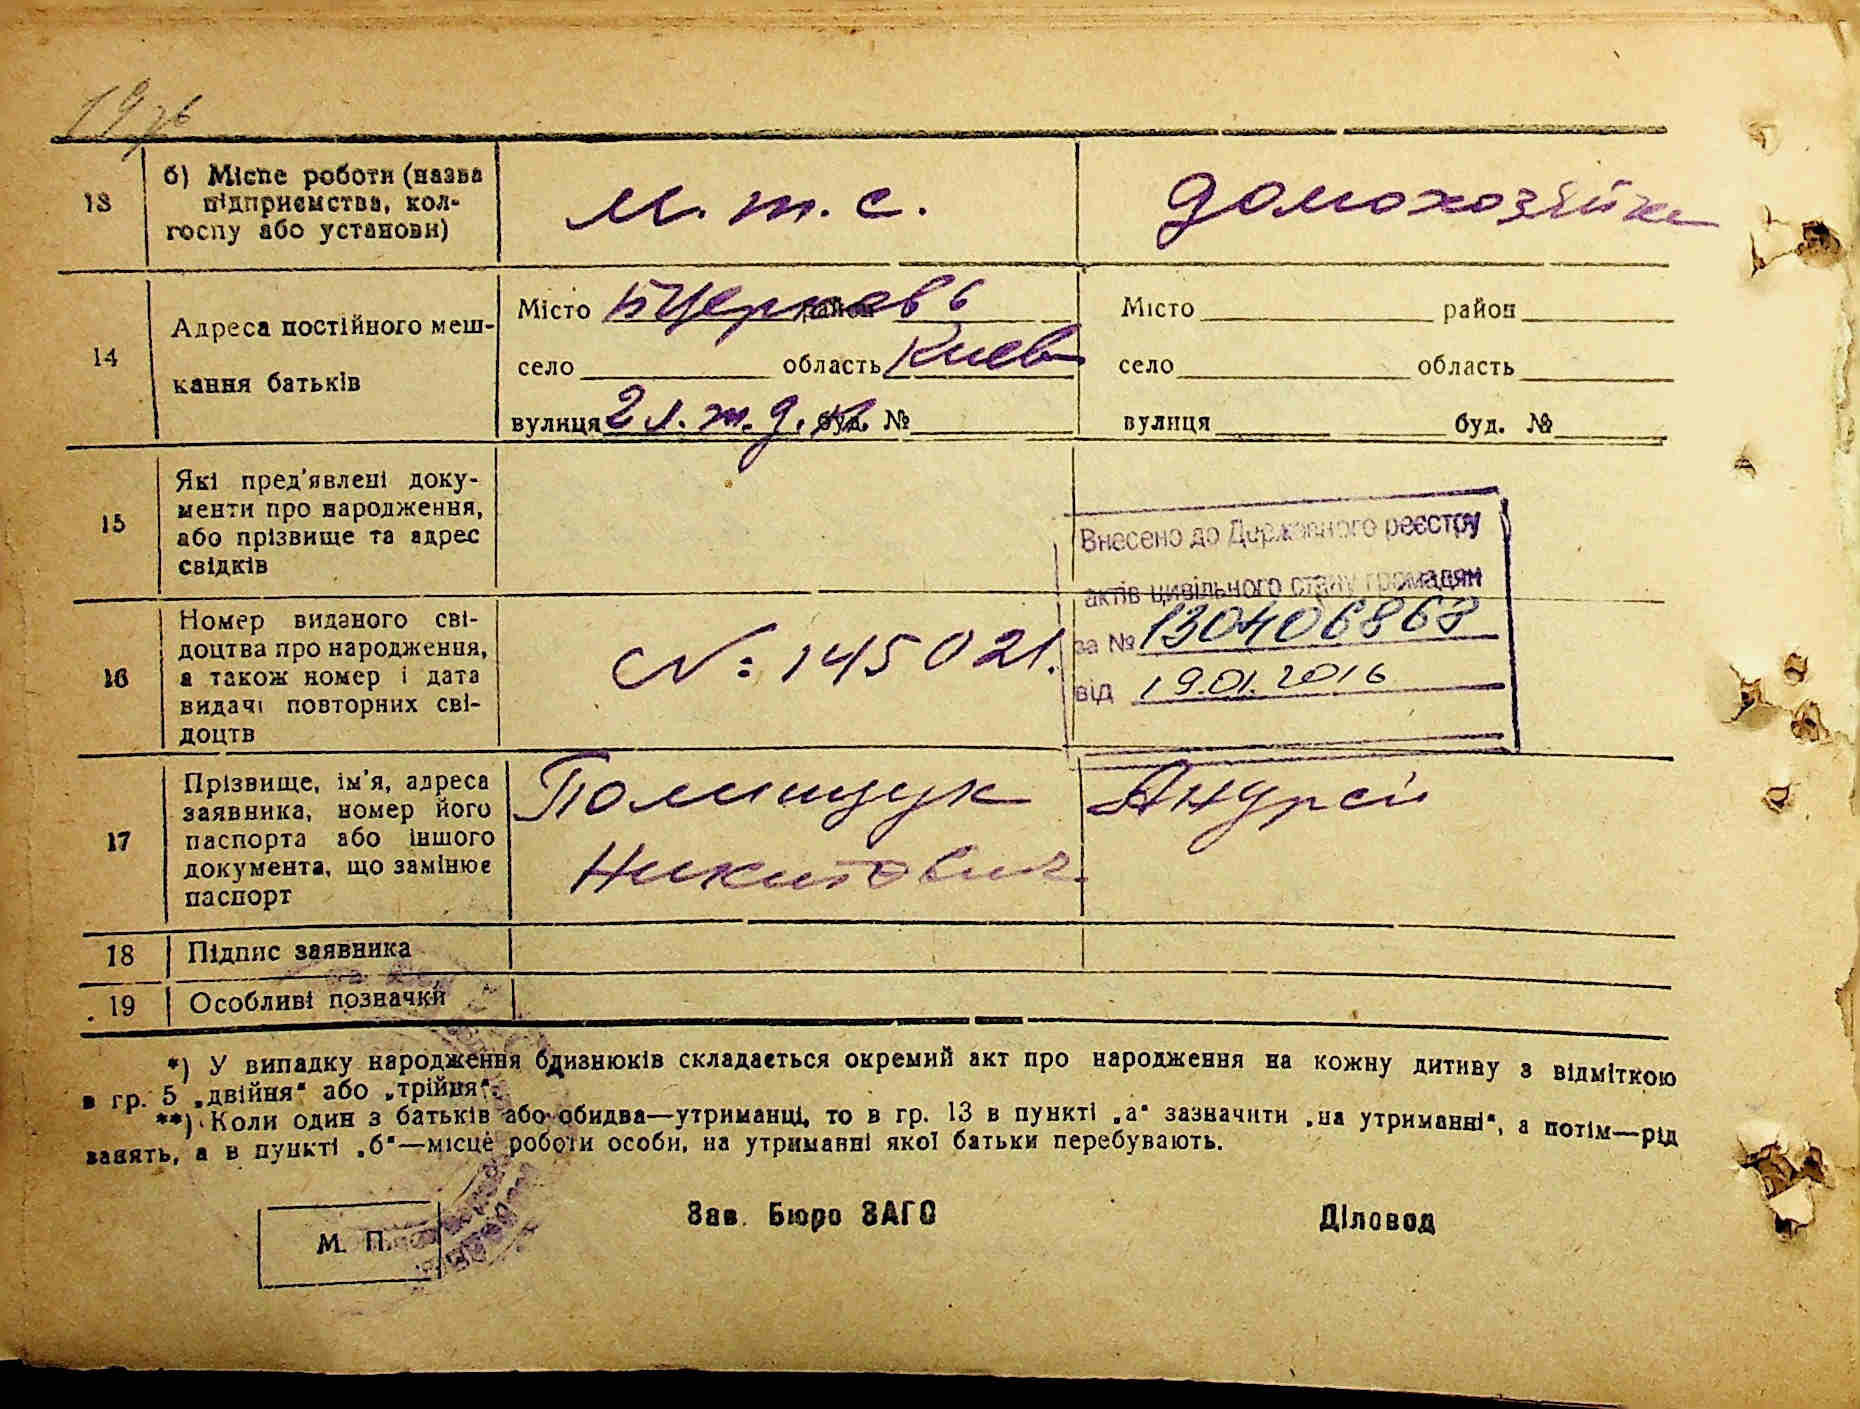 13
б) Місце роботи (назва
підприємства, кол-
госпу або установи)
м. т. с.
домохозяйка
14
Адреса постійного меш-
кання батьків
Місто БЦерковь район
село область Киев
вулиця 2 л. ж. д. буд. №
Місто район
село область
вулиця буд. №
15
Які пред'явлені доку-
менти про народження,
або прізвище та адрес
свідків
Внесено до Державного реєстру
актів цивільного стану громадян
за № 130406868
від 19.01.2016
16
Номер виданого сві-
доцтва про народження,
а також номер і дата
видачі повторних сві-
доцтв
№: 145021.
17
Прізвище, ім'я, адреса
заявника, номер його
паспорта або іншого
документа, що замінює
паспорт
Полищук Андрей
Никитович.
18 Підпис заявника
19 Особливі позначки
*) У випадку народження близнюків складається окремий акт про народження на кожну дитину з відміткою
в гр. 5 „двійня" або „трійня".
**) Коли один з батьків або обидва—утриманці, то в гр. 13 в пункті „а" зазначити „на утриманні", а потім—рід
занять, а в пункті „б"—місце роботи особи, на утриманні якої батьки перебувають.
М. П.
Зав. Бюро ЗАГС
Діловод